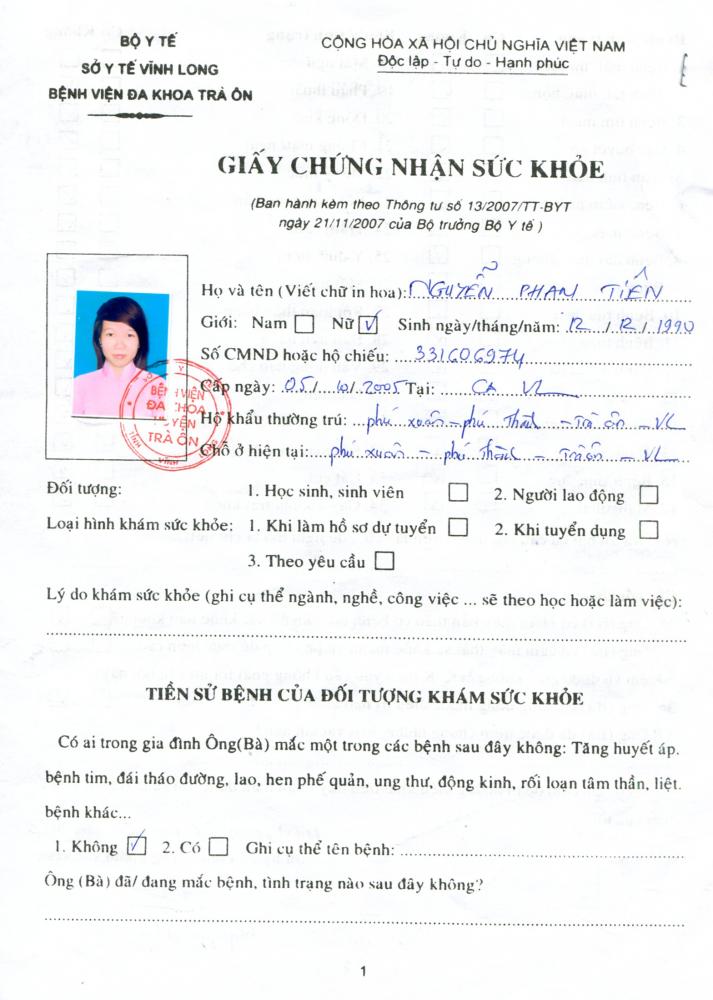 BỘ Y TẾ
SỞ Y TẾ VĨNH LONG
BỆNH VIỆN ĐA KHOA TRÀ ÔN
CỘNG HÒA XÃ HỘI CHỦ NGHĨA VIỆT NAM
Độc lập - Tự do - Hạnh phúc
GIẤY CHỨNG NHẬN SỨC KHỎE
(Ban hành kèm theo Thông tư số 13/2007/TT-BYT
ngày 21/11/2007 của Bộ trưởng Bộ Y tế )
Họ và tên (Viết chữ in hoa): NGUYỄN PHAN TIÊN
Giới: Nam Nữ Sinh ngày/tháng/năm: 12 / 12 / 1990
Số CMND hoặc hộ chiếu: 331606974
Cấp ngày: 05/ 10/ 2005 Tại: CA VL
Hộ khẩu thường trú: phú xuân - phú Thành - Trà ôn - VL
Chỗ ở hiện tại: phú xuân - phú Thành - Trà ôn - VL
BỆNH VIỆN
ĐA KHOA
HUYỆN
TRÀ ÔN
Đối tượng: 1. Học sinh, sinh viên 2. Người lao động
Loại hình khám sức khỏe: 1. Khi làm hồ sơ dự tuyển 2. Khi tuyển dụng
3. Theo yêu cầu
Lý do khám sức khỏe (ghi cụ thể ngành, nghề, công việc ... sẽ theo học hoặc làm việc):
TIỀN SỬ BỆNH CỦA ĐỐI TƯỢNG KHÁM SỨC KHỎE
Có ai trong gia đình Ông(Bà) mắc một trong các bệnh sau đây không: Tăng huyết áp.
bệnh tim, đái tháo đường, lao, hen phế quản, ung thư, động kinh, rối loạn tâm thần, liệt.
bệnh khác...
1. Không 2. Có Ghi cụ thể tên bệnh:
Ông (Bà) đã/ đang mắc bệnh, tình trạng nào sau đây không?
1